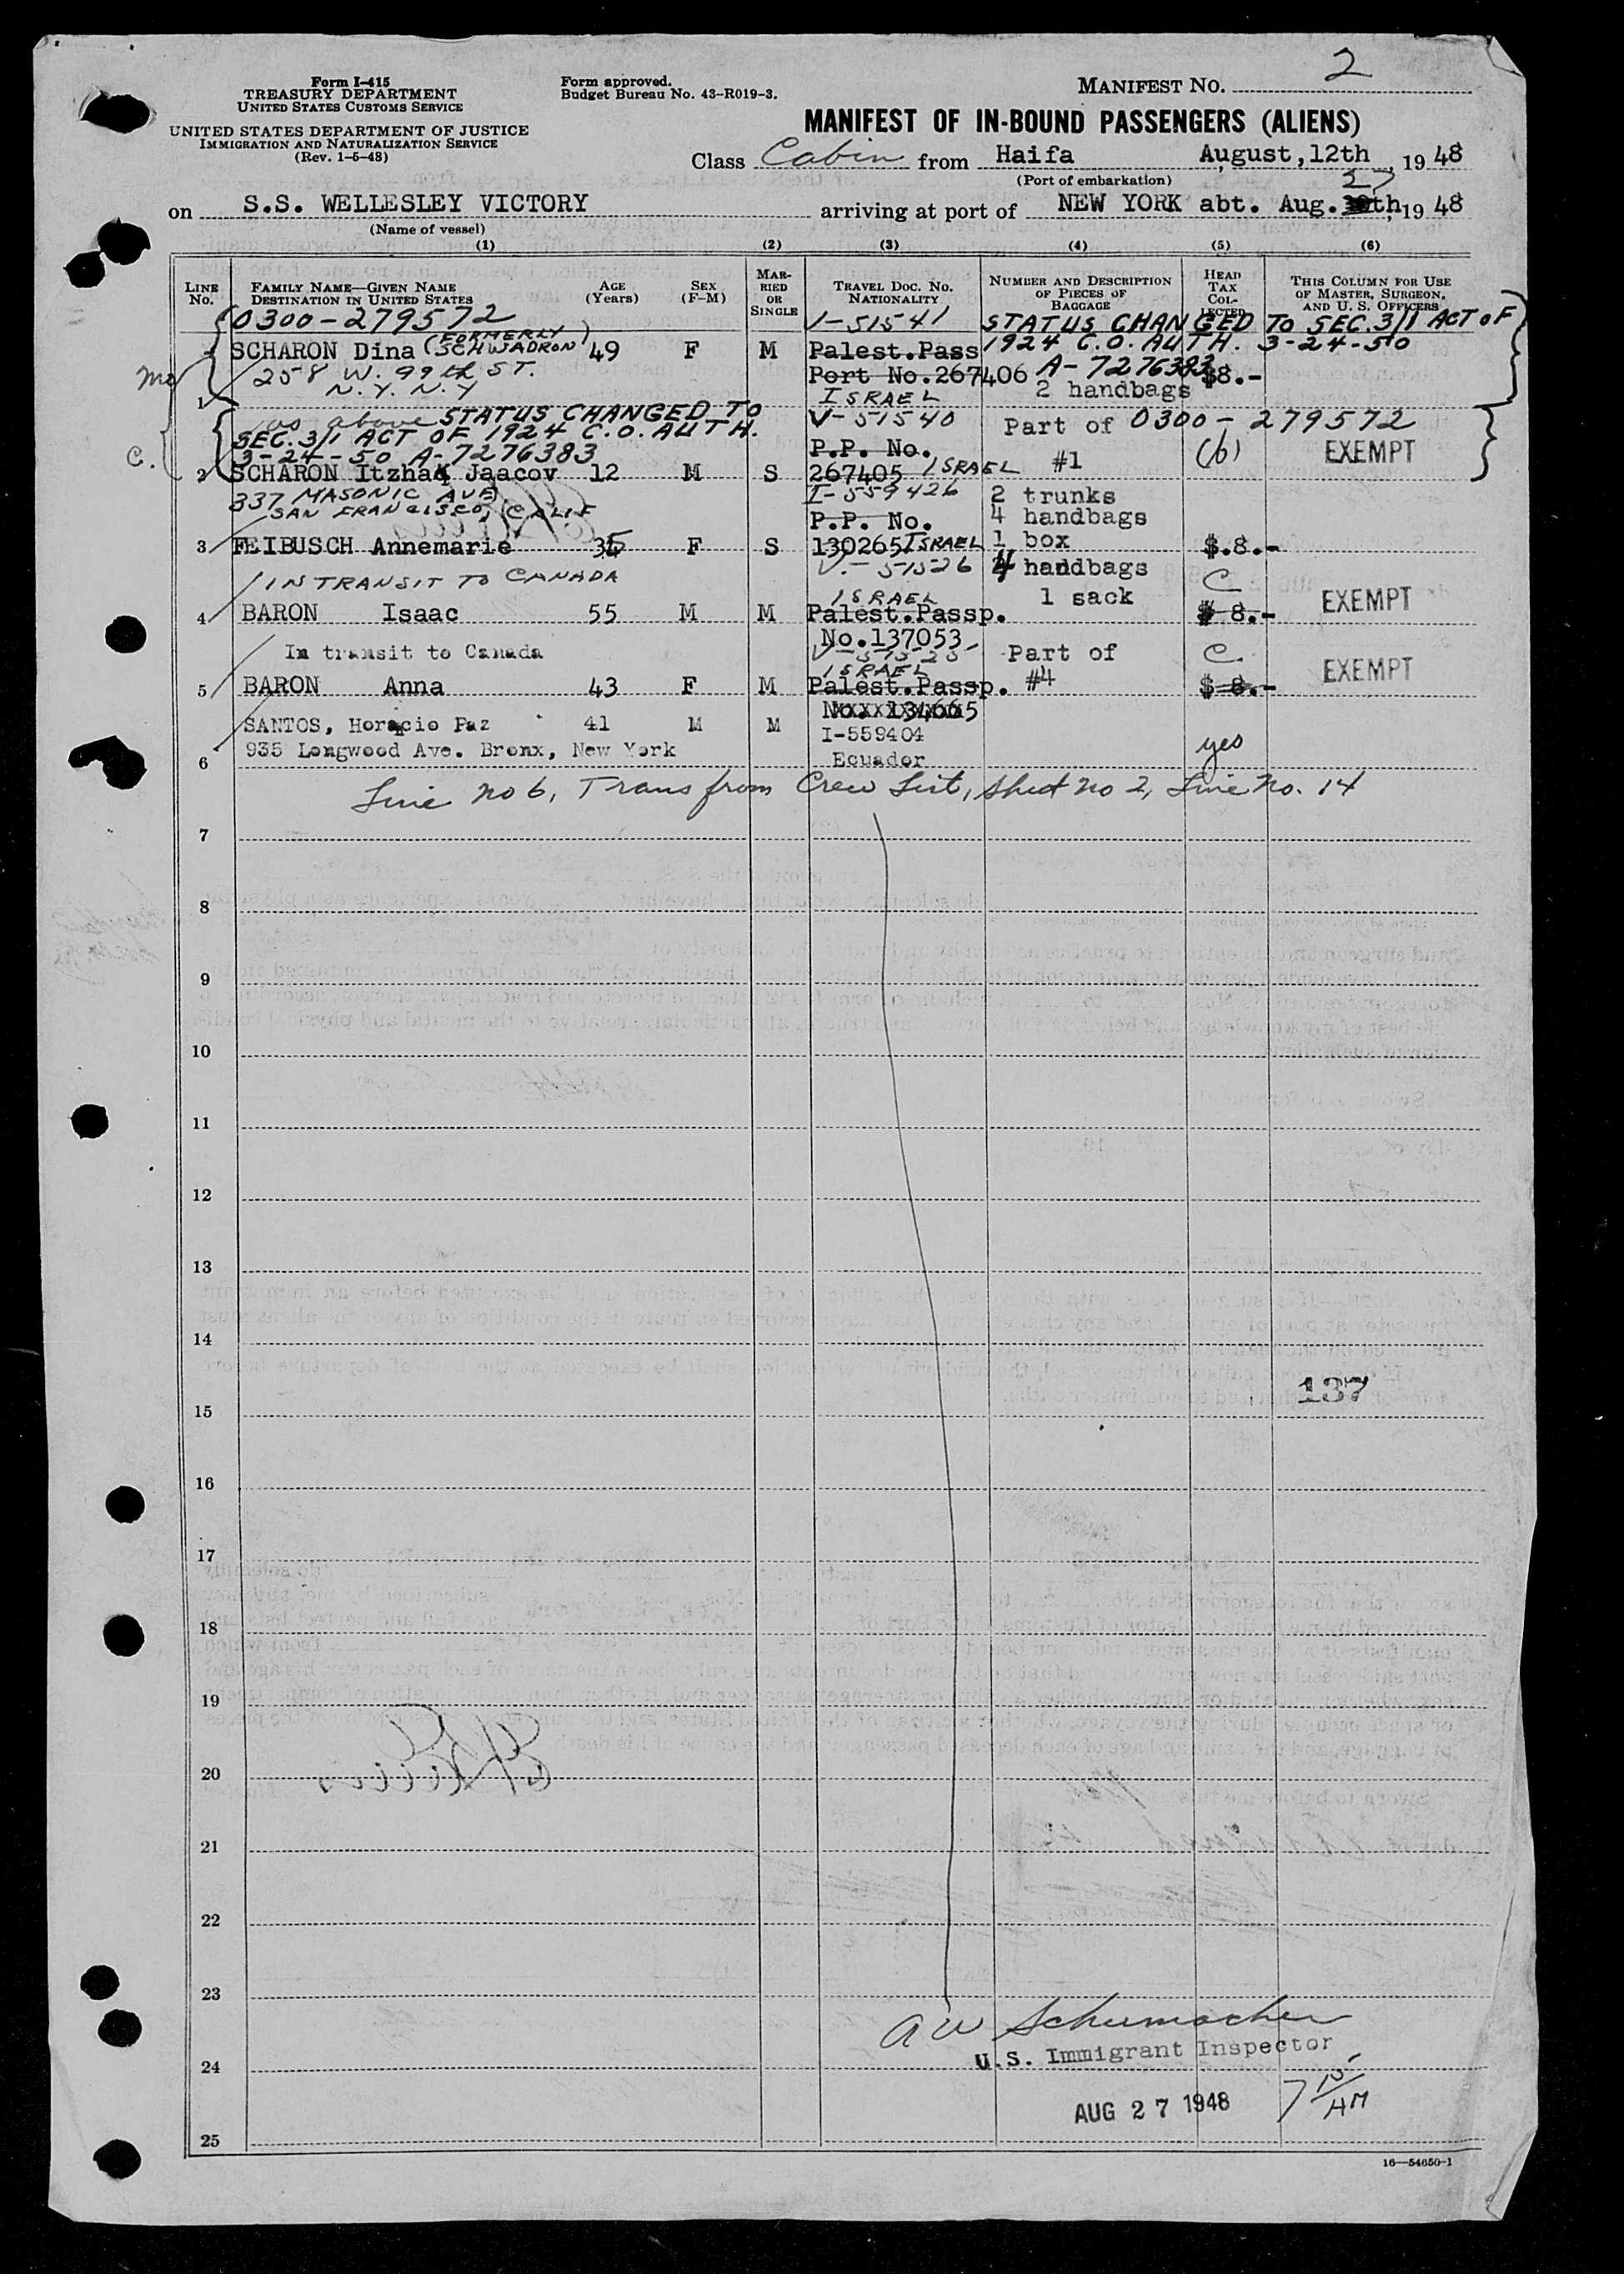 Form I-415
TREASURY DEPARTMENT
UNITED STATES CUSTOMS SERVICE
UNITED STATES DEPARTMENT OF JUSTICE
IMMIGRATION AND NATURALIZATION SERVICE
(Rev. 1-5-48)
Form approved.
Budget Bureau No. 43-R019-3.
MANIFEST NO. 2
MANIFEST OF IN-BOUND PASSENGERS (ALIENS)
Class Cabin from Haifa August,12th, 1948
(Port of embarkation)
27
on S.S. WELLESLEY VICTORY arriving at port of NEW YORK abt. Aug. th, 1948
(Name of vessel)
(1) (2) (3) (4) (5) (6)
LINE No.
FAMILY NAME—GIVEN NAME
DESTINATION IN UNITED STATES
AGE (Years)
SEX (F-M)
MARRIED OR SINGLE
TRAVEL DOC. NO.
NATIONALITY
NUMBER AND DESCRIPTION OF PIECES OF BAGGAGE
HEAD TAX COLLECTED
THIS COLUMN FOR USE OF MASTER, SURGEON, AND U. S. OFFICERS
0300-279572 V-51541 STATUS CHANGED TO SEC.3/1 ACT OF
(FORMERLY SCHWADRON)
SCHARON Dina 49 F M Palest.Pass 1924 C.O. AUTH. 3-24-50
258 W. 99th ST. Port No.267406 A-7276383 $8.-
N.Y. N.Y ISRAEL 2 handbags
1
as above STATUS CHANGED TO V-51540 Part of 0300-279572
SEC.3/1 ACT OF 1924 C.O. AUTH. P.P. No. (b) EXEMPT
3-24-50 A-7276383
2 SCHARON Itzhak Jaacov 12 M S 267405 ISRAEL #1
337 MASONIC AVE I-559426 2 trunks
SAN FRANCISCO, CALIF P.P. No. 4 handbags
3 FEIBUSCH Annemarie 35 F S 130265 ISRAEL 1 box $.8.-
IN TRANSIT TO CANADA V.-51526 4 handbags C
ISRAEL 1 sack
4 BARON Isaac 55 M M Palest.Passp. $ 8.- EXEMPT
No.137053
In transit to Canada Part of C.
ISRAEL
5 BARON Anna 43 F M Palest.Passp. #4 $ 8.- EXEMPT
No. 134665
SANTOS, Horacio Paz 41 M M I-559404
6 935 Longwood Ave. Bronx, New York Ecuador yes
Line no 6, Trans from Crew List, Sheet no 2, Line No. 14
7
8
9
10
11
12
13
14
137
15
16
17
18
19
20
21
22
23
A W Schumacher
24 U.S. Immigrant Inspector
AUG 27 1948 7 15/AM
25
16—54650-1